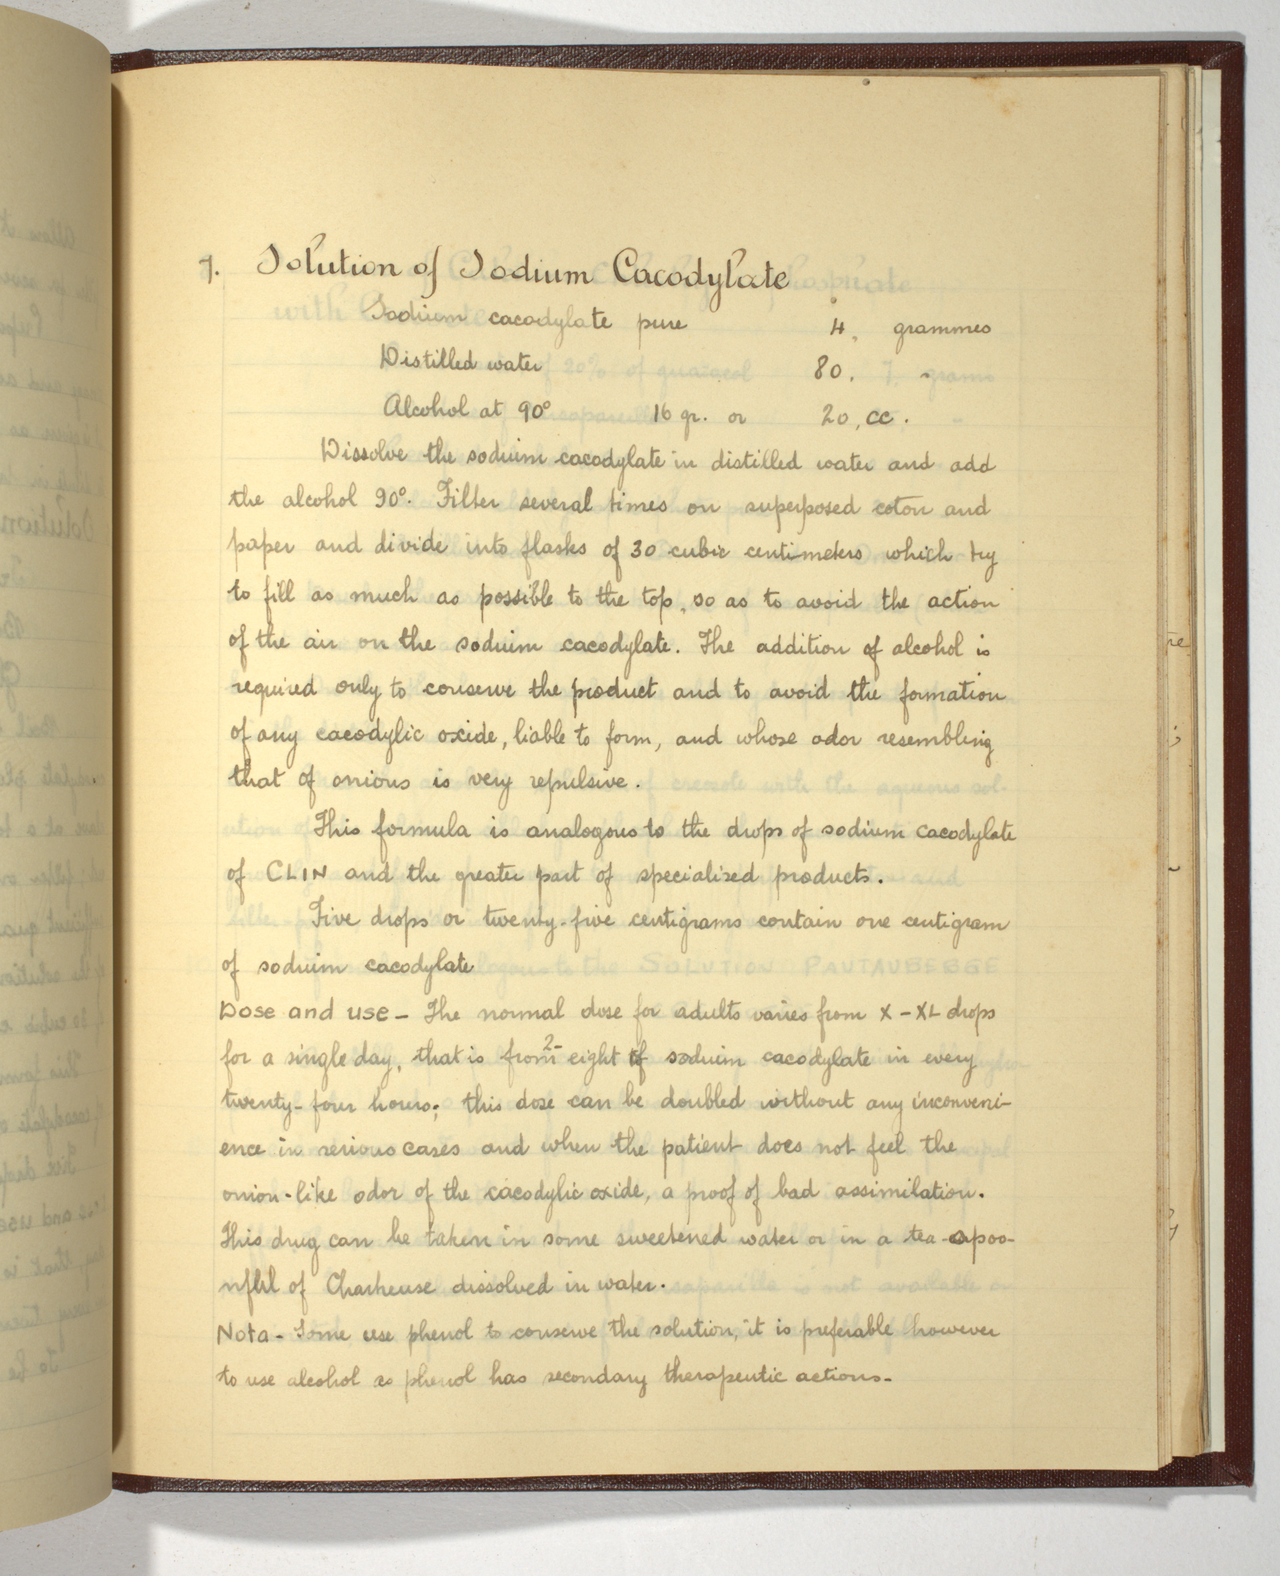 7. Solution of Sodium Cacodylate
Sodium cacodylate pure 4, grammes
Distilled water 80, "
Alcohol at 90° 16 gr. or 20, cc.
Dissolve the sodium cacodylate in distilled water and add
the alcohol 90°. Filter several times on superposed coton and
paper and divide into flasks of 30 cubic centimeters which try
to fill as much as possible to the top, so as to avoid the action
of the air on the sodium cacodylate. The addition of alcohol is
required only to conserve the product and to avoid the formation
of any cacodylic oxide, liable to form, and whose odor resembling
that of onions is very repulsive.
This formula is analogous to the drops of sodium cacodylate
of CLIN and the greater part of specialised products.
Five drops or twenty-five centigrams contain one centigram
of sodium cacodylate
Dose and use - The normal dose for adults varies from X - XL drops
for a single day, that is from 2- eight of sodium cacodylate in every
twenty-four hours; this dose can be doubled without any inconveni-
ence in serious cases and when the patient does not feel the
onion-like odor of the cacodylic oxide, a proof of bad assimilation.
This drug can be taken in some sweetened water or in a tea-spoo-
nful of Charteuse dissolved in water.
Nota - Some use phenol to conserve the solution, it is preferable however
to use alcohol as phenol has secondary therapeutic actions.